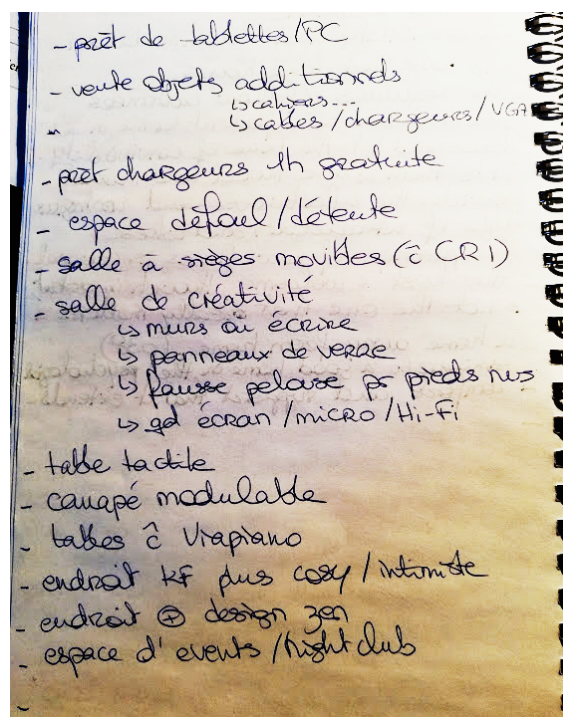 - prêt de tablettes/PC
- vente objets additionnels
↳ cahiers...
↳ cables/chargeurs/VGA
- prêt chargeurs 1h gratuite
- espace défoul/détente
- salle à sièges movibles (ĉ CRI)
- salle de créativité
↳ murs où écrire
↳ panneaux de verre
↳ fausse pelouse pr pieds nus
↳ gd écran/micro/Hi-Fi
- table tactile
- canapé modulable
- tables ĉ Viapiano
- endroit KF plus cosy/intimiste
- endroit ⊕ design zen
- espace d'events/nightclub